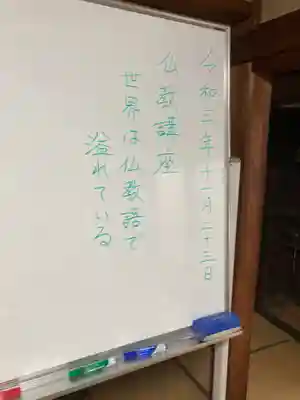 令和三年十一月二十三日
仏教語座
世界は仏教語で
溢れている